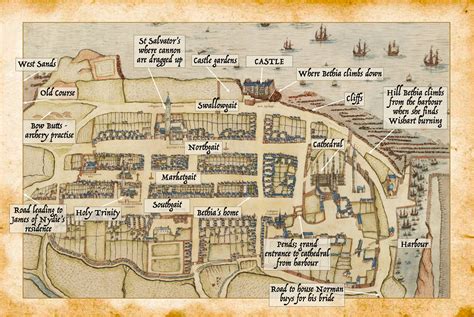 St Salvator's
where cannon
are dragged up
Castle gardens
CASTLE
West Sands
Where Bethia climbs down
Old Course
Swallowgait
Cliffs
Hill Bethia climbs
from the harbour
when she finds
Wishart burning
Bow Butts -
archery practise
Northgait
Cathedral
Marketgait
Southgait
Road leading to
James of Nydie's
residence
Holy Trinity
Bethia's home
Pends: grand
entrance to cathedral
from harbour
Harbour
Road to house Norman
buys for his bride